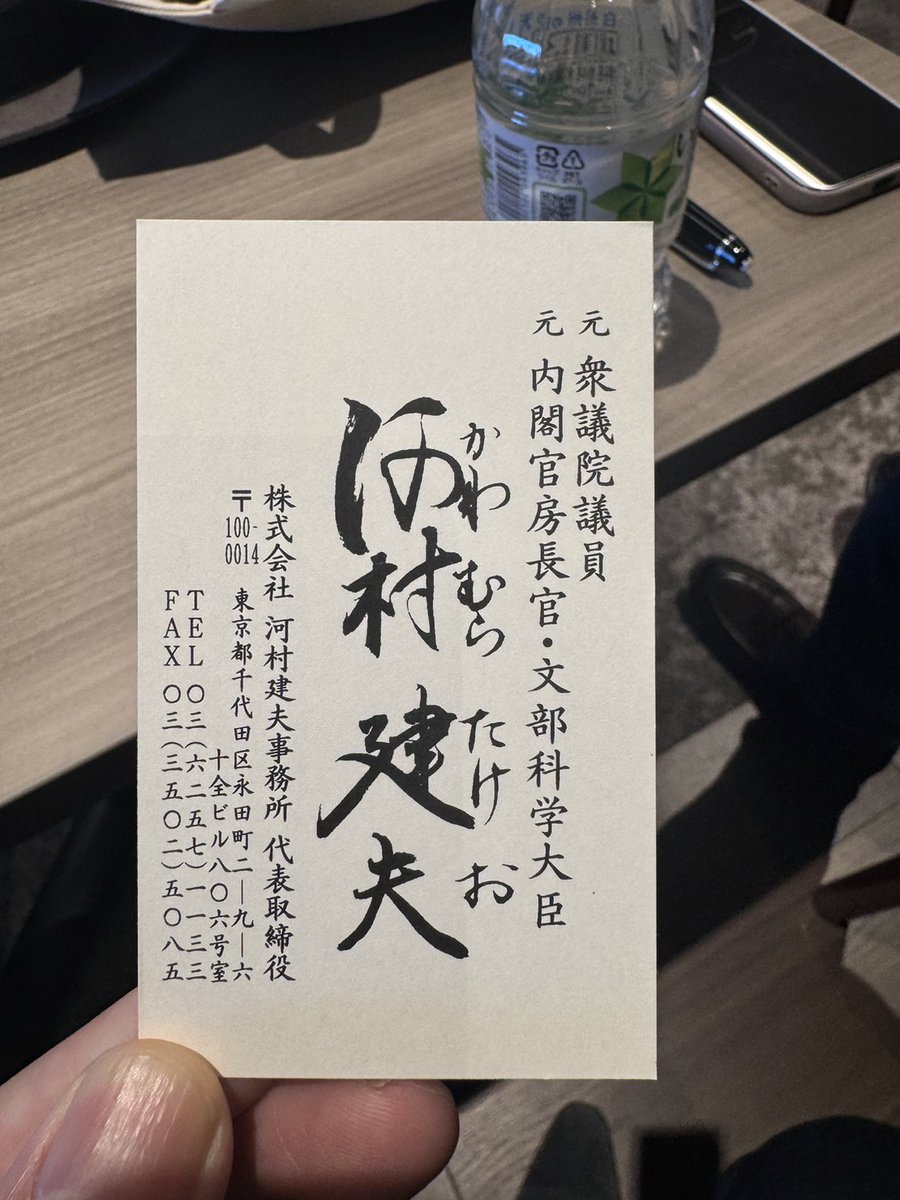 元 衆議院議員
元 内閣官房長官・文部科学大臣
かわ むら たけ お
河村 建夫
株式会社 河村建夫事務所 代表取締役
〒100-0014 東京都千代田区永田町二―九―六
十全ビル八〇六号室
TEL 〇三(六二五七)一一三三
FAX 〇三(三五〇二)五〇八五